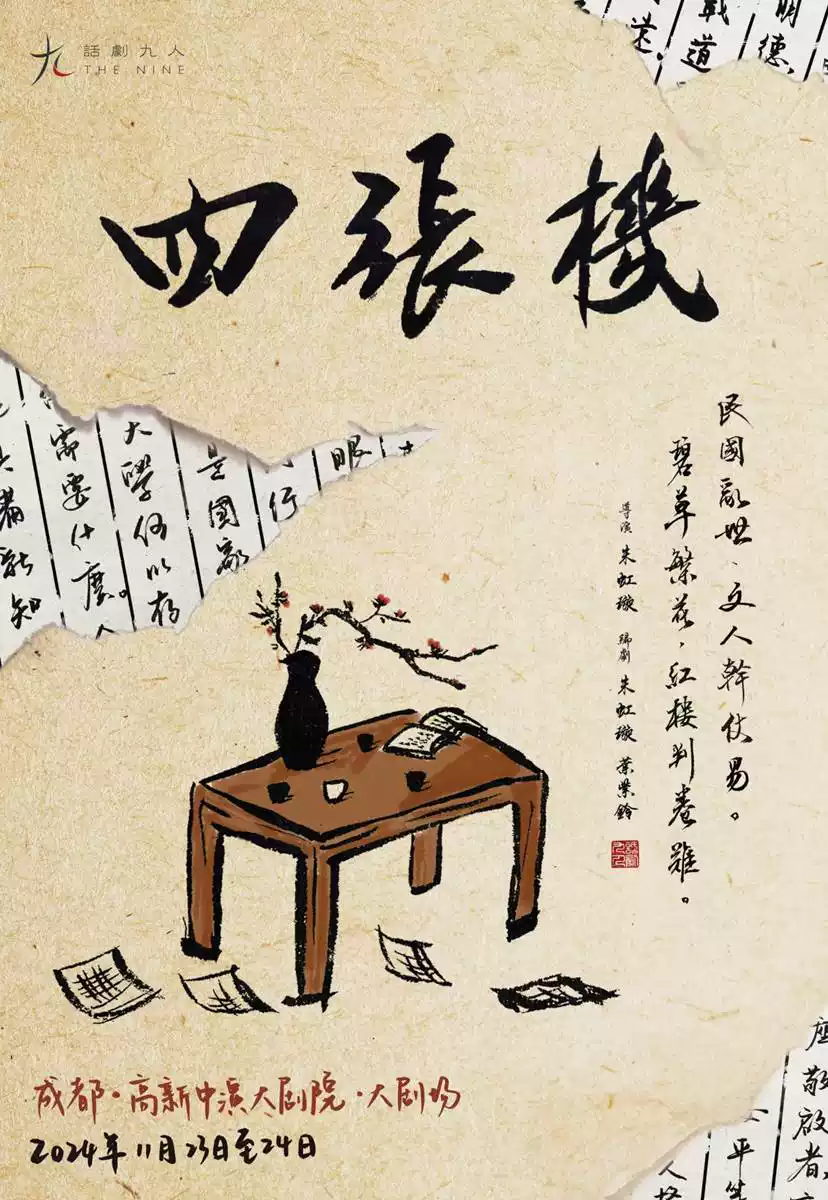 話劇九人
THE NINE
四張機
民國亂世、文人幹仗易。
碧草繁花，紅樓判卷難。
導演 朱虹璇 編劇 朱虹璇 葉紫鈴
戰道
明德、
需要什麼。
大學何以存
是國家
行
眼
座敬啟者，
平
人格
成都·高新中演大剧院·大剧场
2024年11月23日至24日